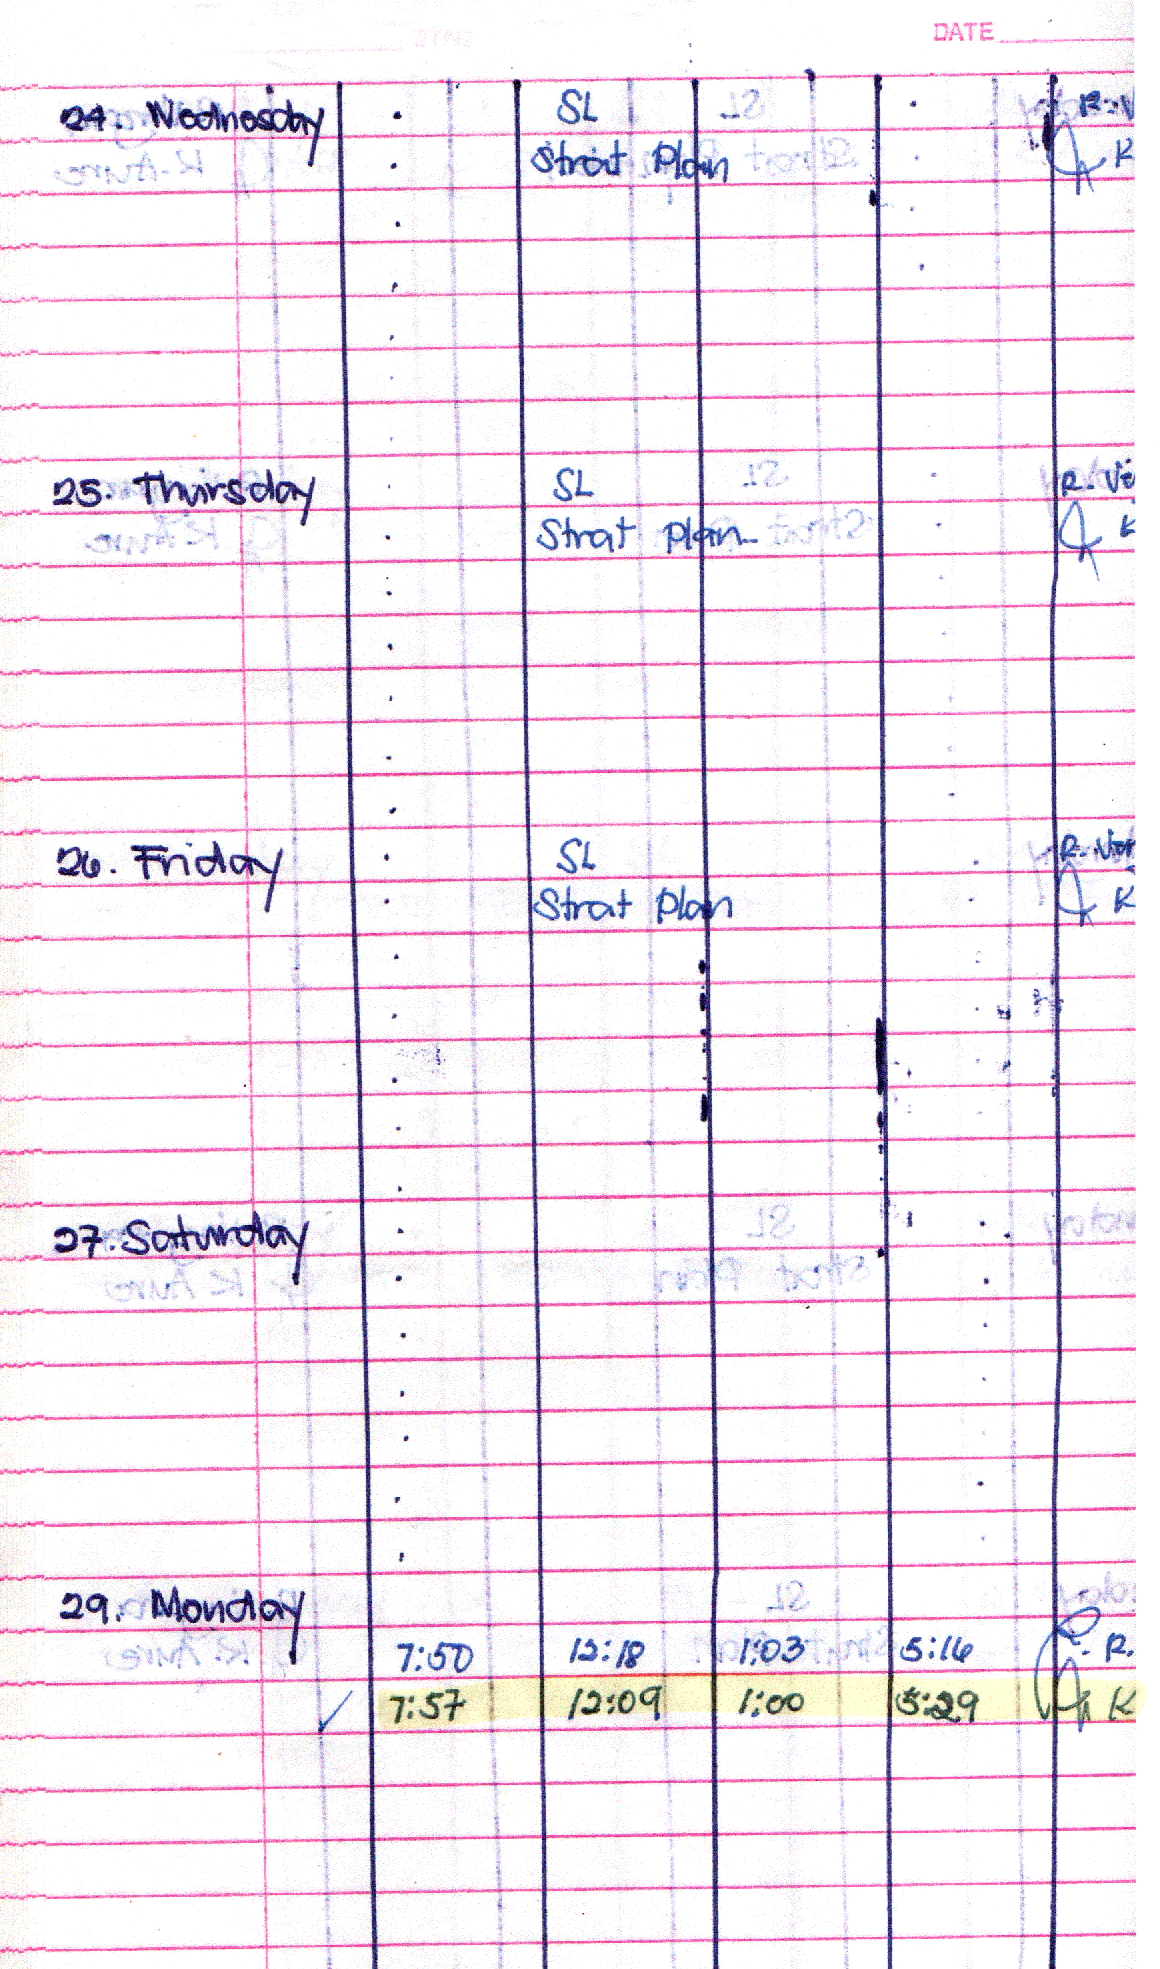 DATE
24. Wednesday SL R. V
Strat Plan K
25. Thursday SL R. Ve
Strat Plan K
26. Friday SL R. Ver
Strat Plan K
27. Saturday
29. Monday
7:50 12:18 1:03 5:16 R.
7:57 12:09 1:00 5:29 K